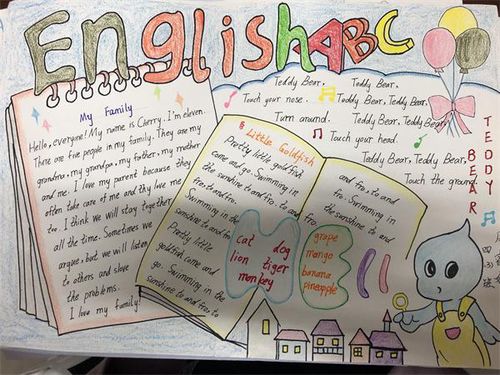 EnglishABC
My Family
Hello, everyone! My name is Cherry. I'm eleven.
There are five people in my family. They are my
grandma, my grandpa, my father, my mother
and me. I love my parents because they
often take care of me and thy love me
too. I think we will stay together
all the time. Sometimes we
argue, but we will listen
to others and slove
the problems.
I love my family!
Teddy Bear, Teddy Bear,
Touch your nose. Teddy Bear, Teddy Bear,
Turn around. Teddy Bear, Teddy Bear
Touch your head.
Teddy Bear, Teddy Bear,
Touch the ground
TEDDY
BEAR
Little Goldfish
Pretty little goldfish
come and go. Swimming in
the sunshine to and fro, to and
fro, to and fro.
Swimming in the
sunshine to and fro
Pretty little
goldfish come and
go. Swimming in the
sunshine to and fro, to
and fro, to and
fro. Swimming in
the sunshine to
and fro.
cat dog
lion tiger
monkey
grape
mango
banana
pineapple
四